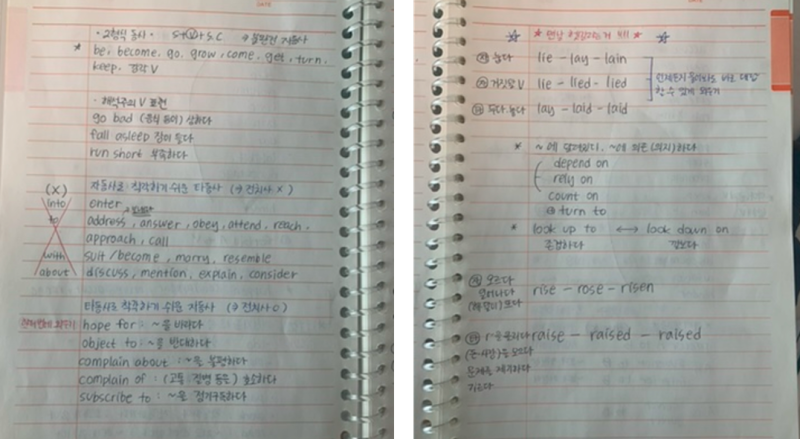 · 2형식 동사 S+(V)+S.C → 불완전 자동사
* be, become, go, grow, come, get, turn,
keep, 감각 V
V 표현
go bad (음식 등이) 상하다
fall asleep 잠이 들다
run short 부족하다
(X) 자동사로 착각하기 쉬운 타동사 (→ 전치사 X)
into enter
to address, answer, obey, attend, reach,
approach, call
with suit/become, marry, resemble
about discuss, mention, explain, consider
타동사로 착각하기 쉬운 자동사 (→ 전치사 O)
hope for : ~을 바라다
object to : ~을 반대하다
complain about : ~을 불평하다
complain of : (고통 질병 등을) 호소하다
subscribe to : ~을 정기구독하다
!!!
눕다 lie - lay - lain
거짓말 V lie - lied - lied
두다, 놓다 lay - laid - laid
* ~에 달려있다, ~에 의존(의지)하다
depend on
rely on
count on
turn to
* look up to ↔ look down on
존경하다 깔보다
오르다
일어나다
뜨다
rise - rose - risen
raise - raised - raised
기르다